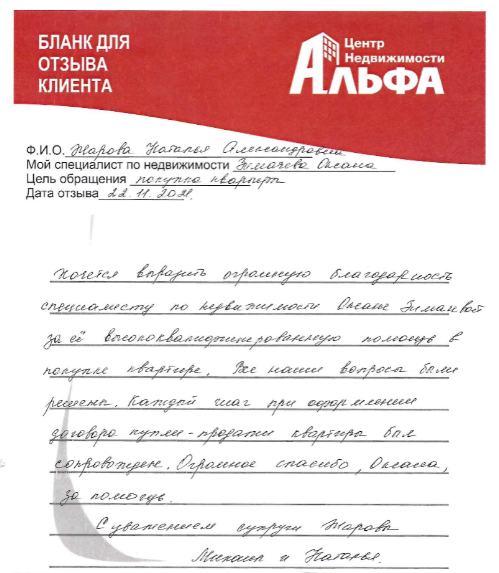 БЛАНК ДЛЯ
ОТЗЫВА
КЛИЕНТА
Центр
Недвижимости
АЛЬФА
Ф.И.О. Жарова Наталья Александровна
Мой специалист по недвижимости Зимачева Оксана
Цель обращения покупка квартиры
Дата отзыва 22.11.2021.
Хочется выразить огромную благодарность
специалисту по недвижимости Оксане Зимачевой
за её высококвалифицированную помощь в
покупке квартире. Все наши вопросы были
решены. Каждый шаг при оформлении
договора купли-продажи квартиры был
сопровожден. Огромное спасибо, Оксана,
за помощь.
С уважением супруги Жаровы
Михаил и Наталья.